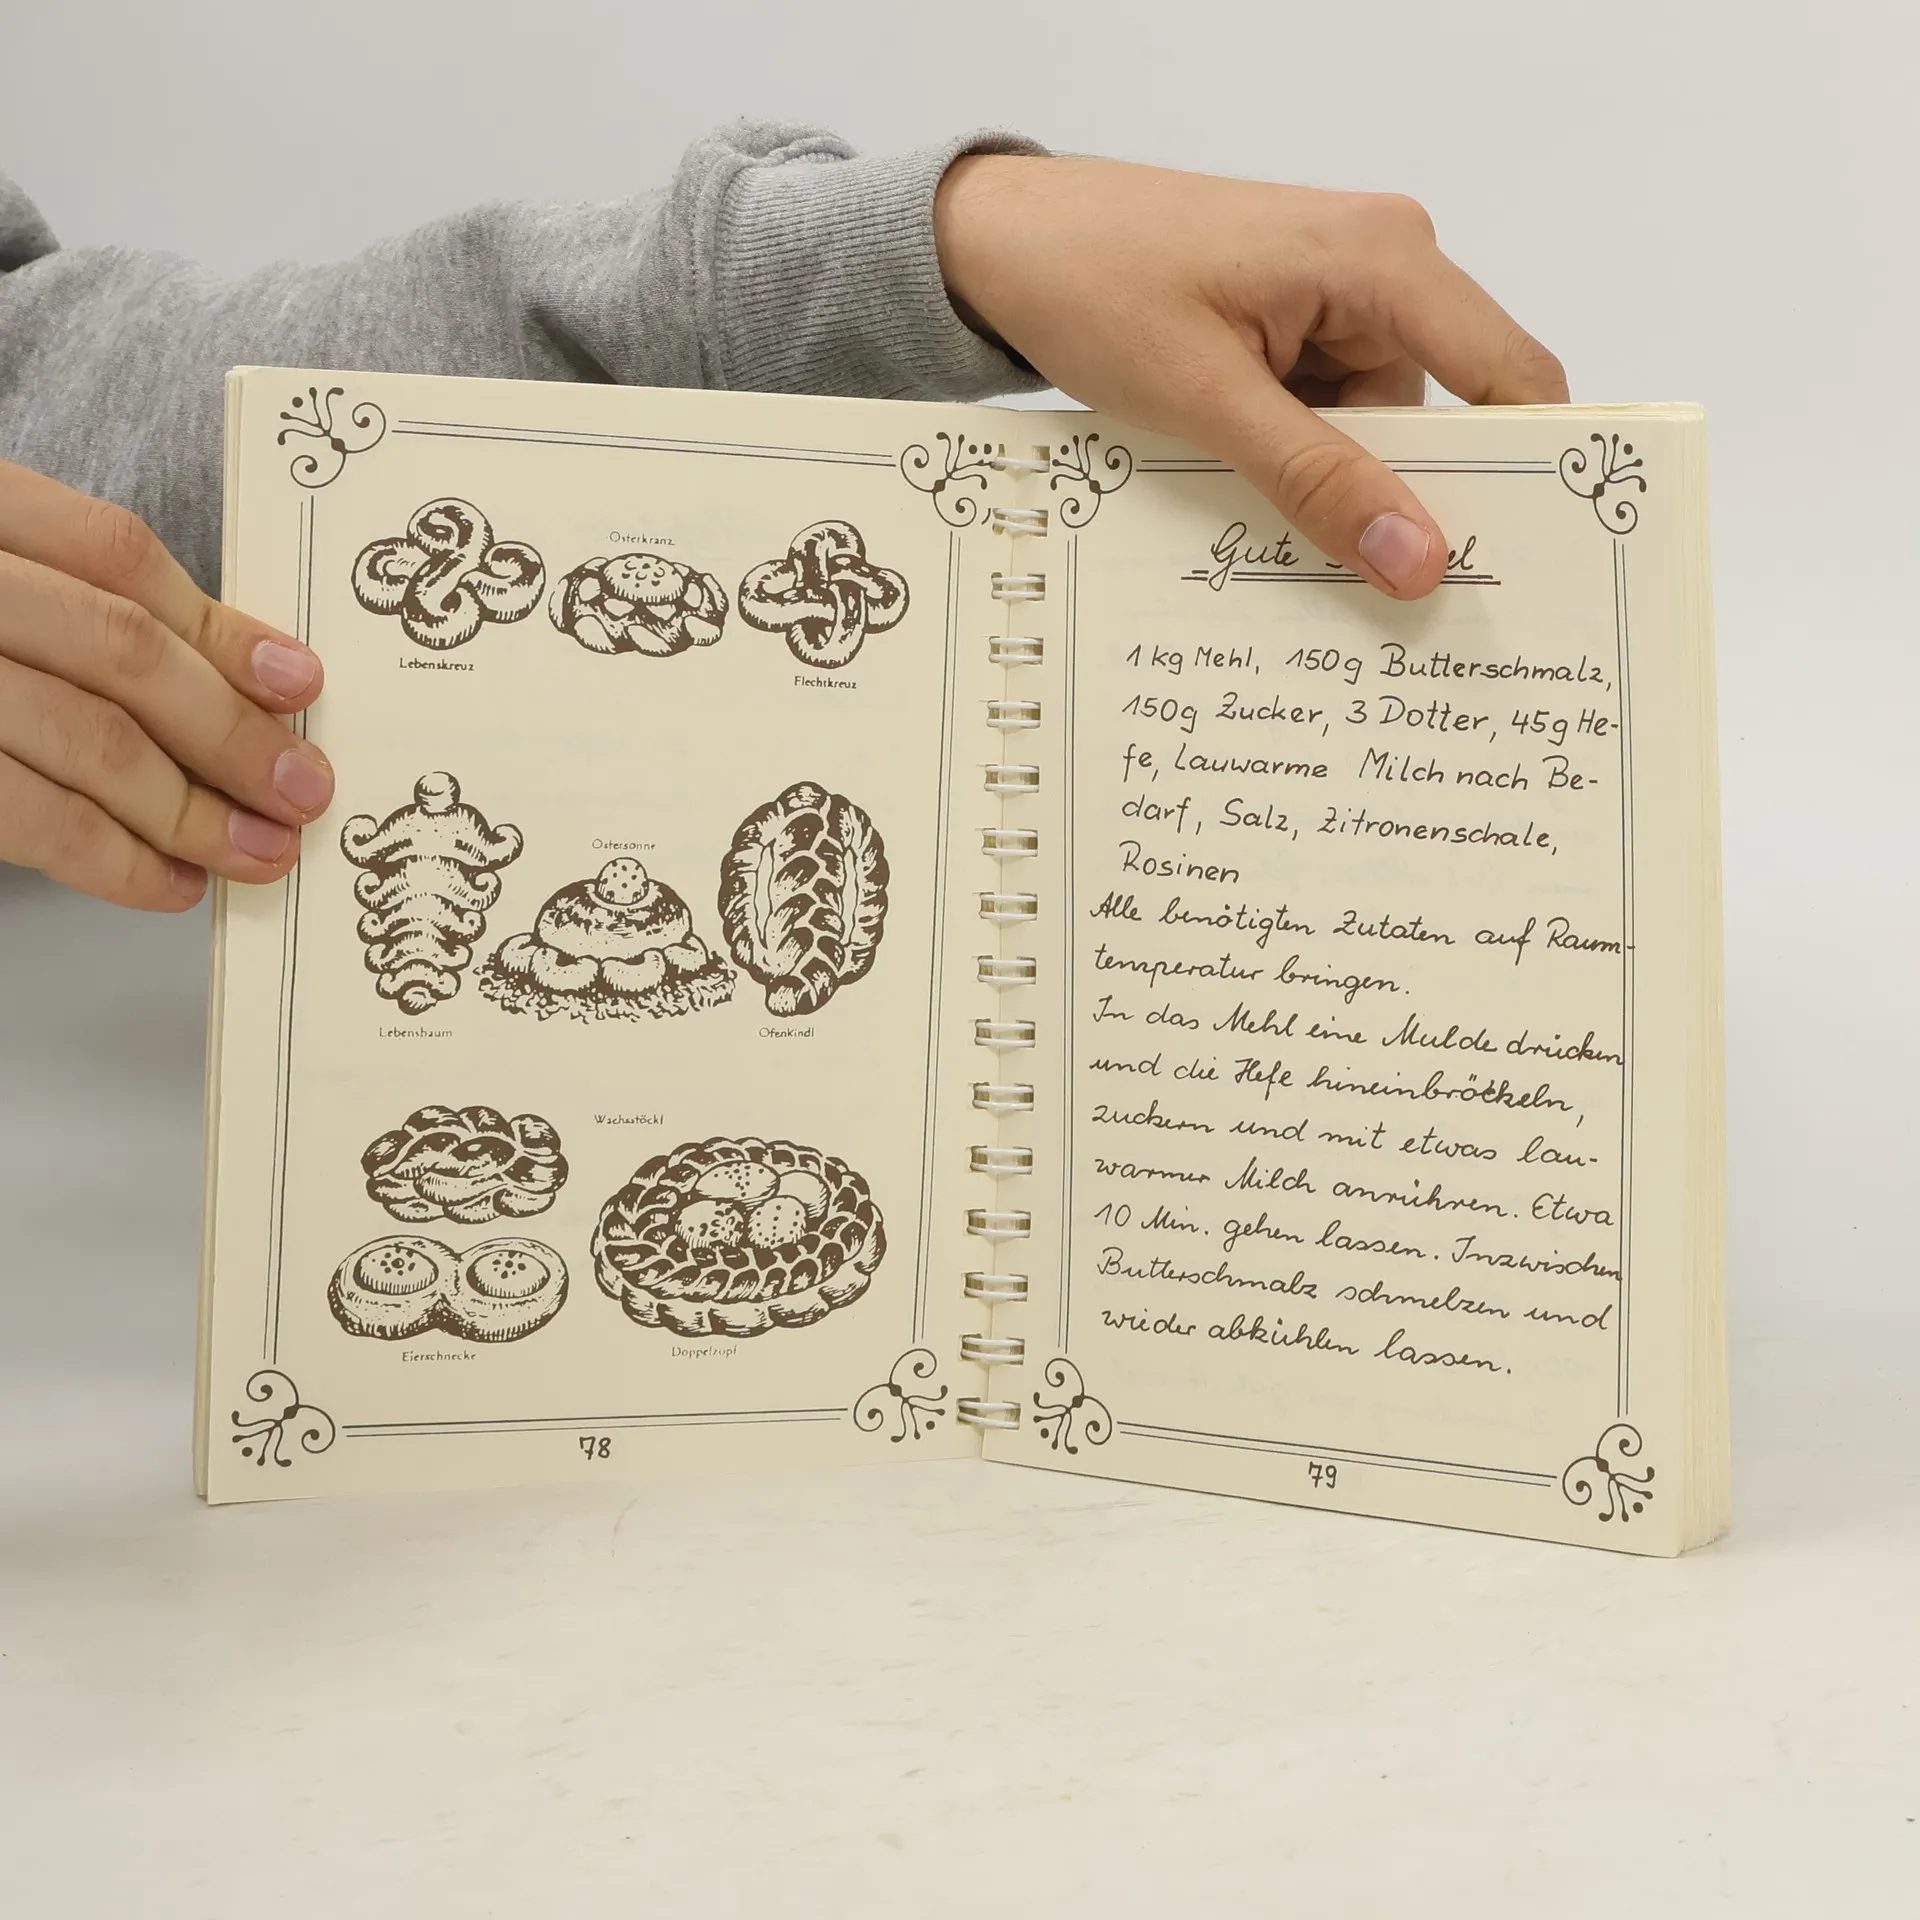 Osterkranz
Lebenskreuz
Flechtkreuz
Ostersonne
Lebensbaum
Ofenkindl
Wachsstöckl
Eierschnecke
Doppelzopf
78
Gute
1 kg Mehl, 150g Butterschmalz,
150g Zucker, 3 Dotter, 45g He-
fe, Lauwarme Milch nach Be-
darf, Salz, Zitronenschale,
Rosinen
Alle benötigten Zutaten auf Raum-
temperatur bringen.
In das Mehl eine Mulde drücken
und die Hefe hineinbröckeln,
zuckern und mit etwas lau-
warmer Milch anrühren. Etwa
10 Min. gehen lassen. Inzwischen
Butterschmalz schmelzen und
wieder abkühlen lassen.
79